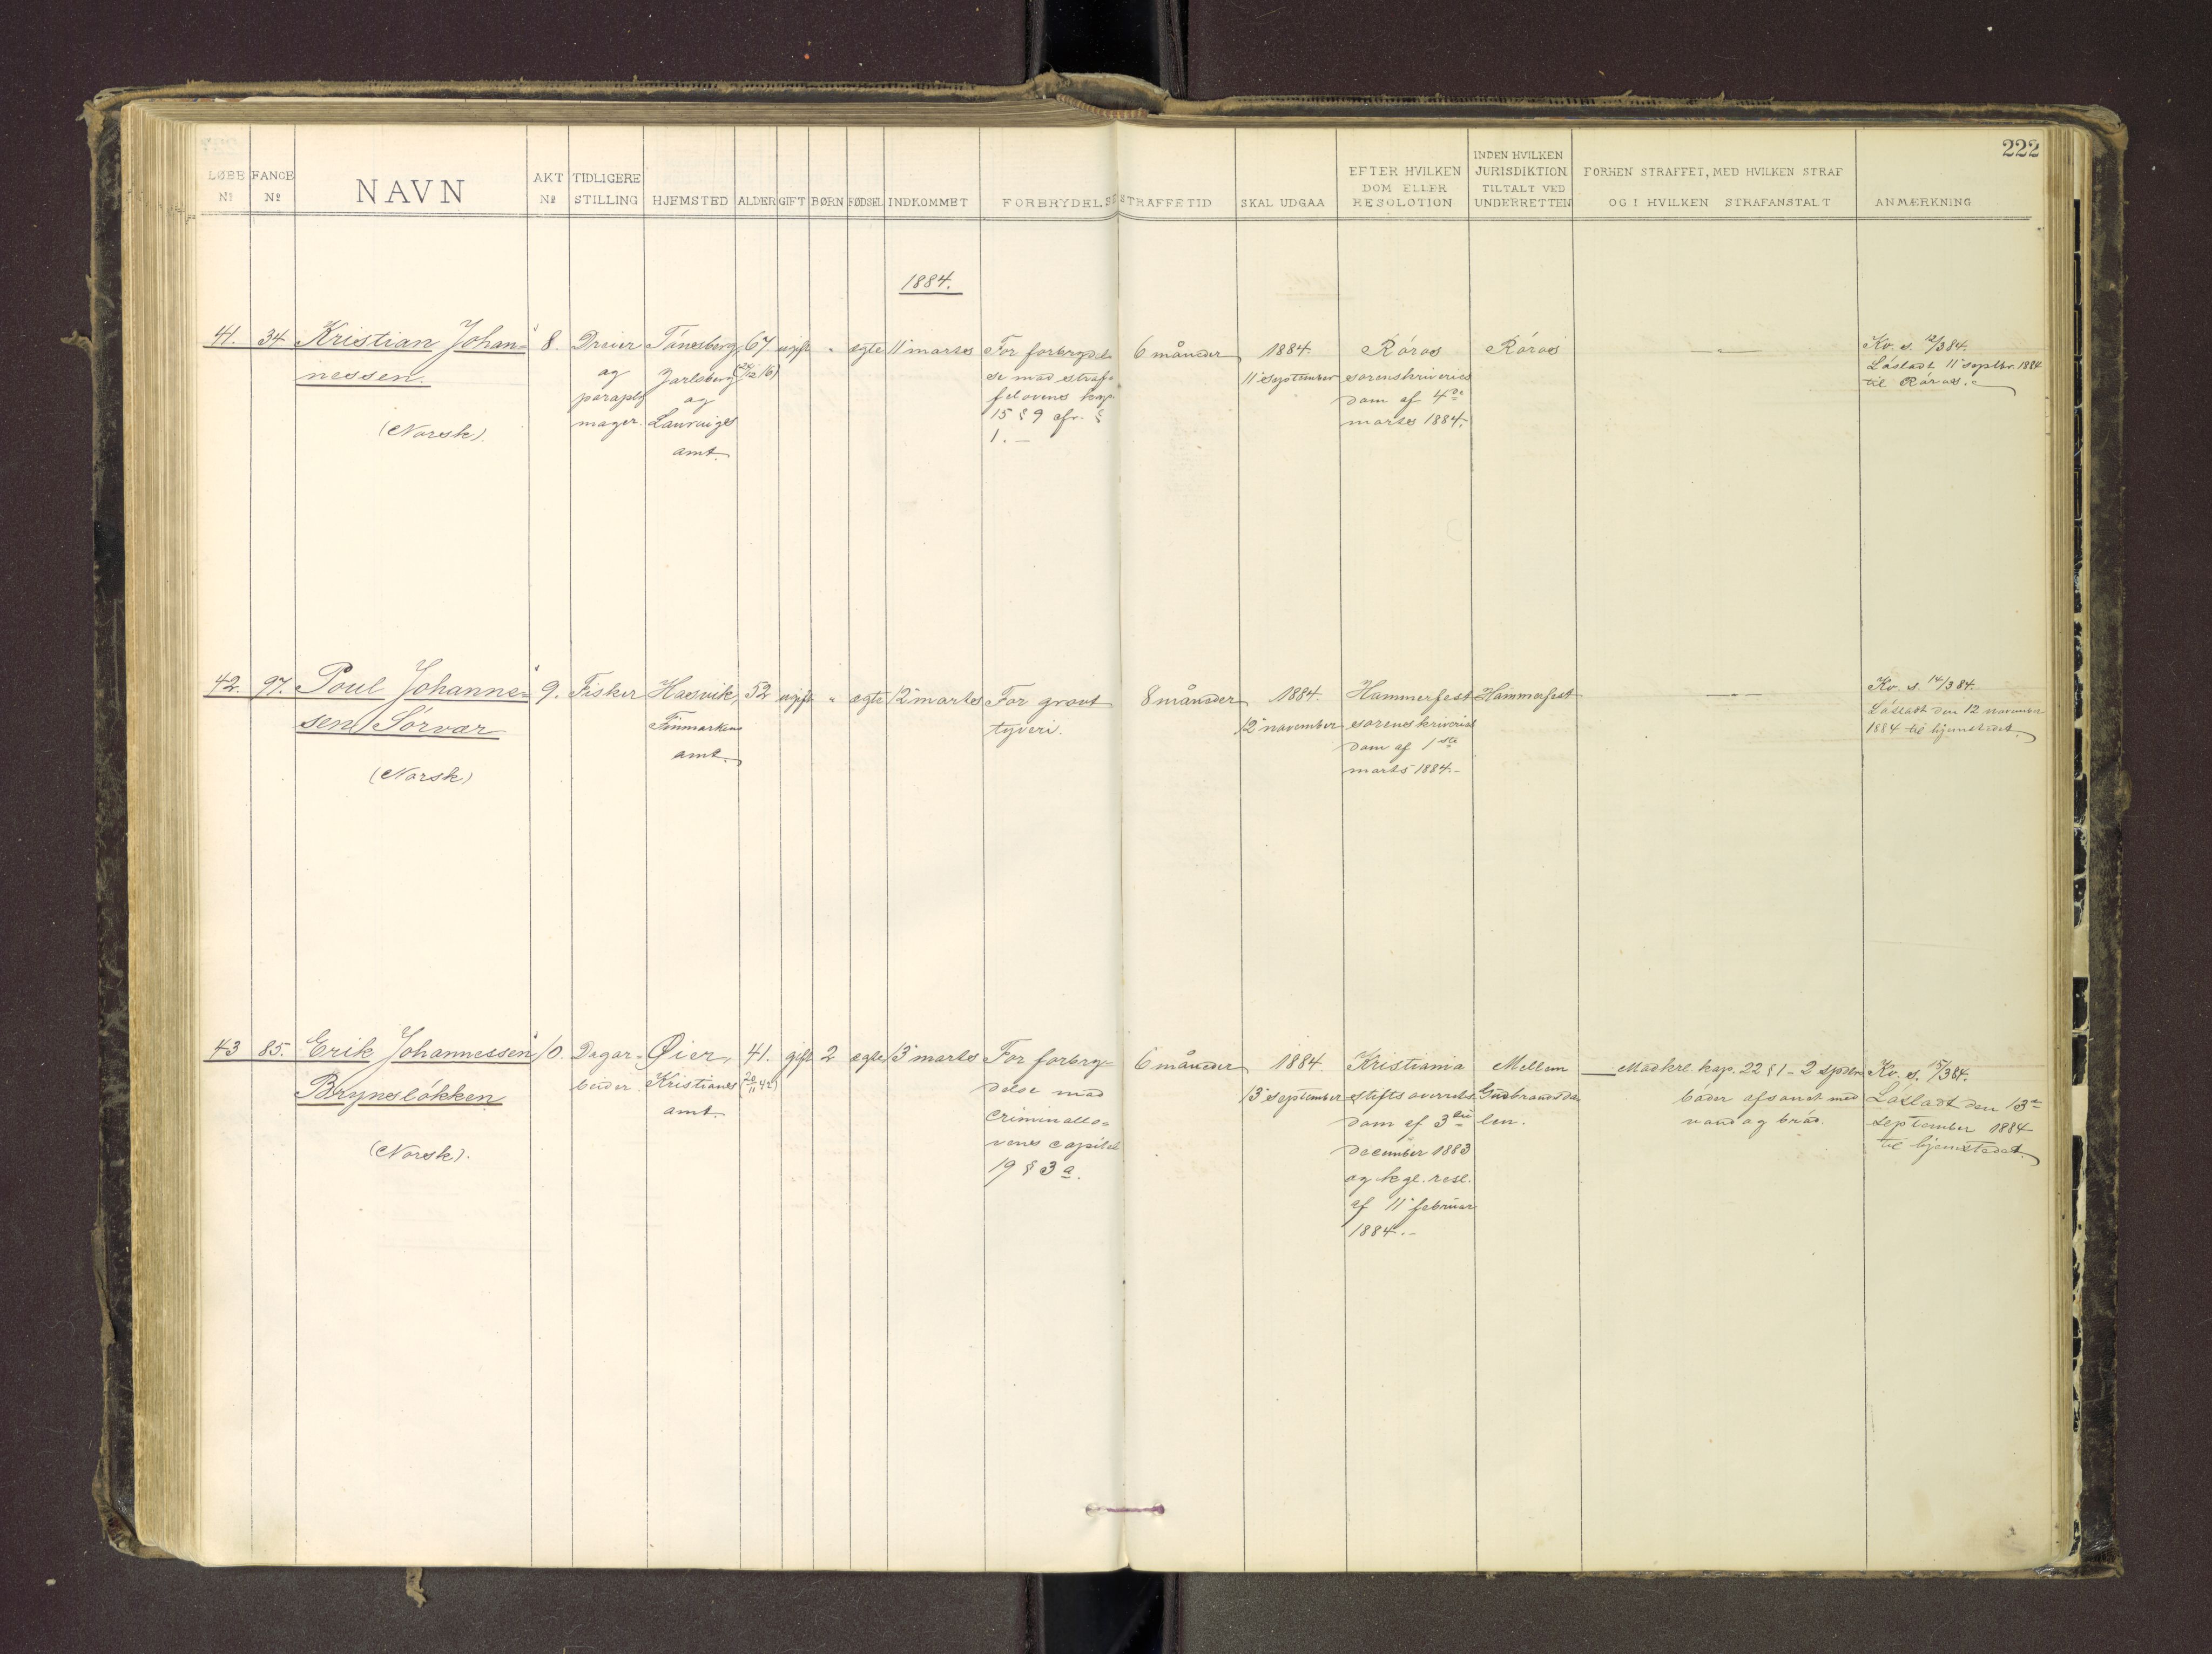 222
LØBE No
FANGE No
NAVN
AKT No
TIDLIGERE STILLING
HJEMSTED
ALDER
GIFT
BØRN
FØDSEL
INDKOMMET
FORBRYDELSE
STRAFFETID
SKAL UDGAA
EFTER HVILKEN DOM ELLER RESOLUTION
INDEN HVILKEN JURISDIKTION TILTALT VED UNDERRETTEN
FORHEN STRAFFET, MED HVILKEN STRAF OG I HVILKEN STRAFANSTALT
ANMÆRKNING
1884.
41.
34
Kristian Johan=
nessen.
(Norsk).
8.
Dreier
og
paraply
mager.
Tönsberg,
Jarlsberg
og
Laurvigs
amt.
67
ugift
"
ægte
11' marts
For forbrydel
se mod straf=
felovens kap.
15 § 9 cfr. §
1. –
6 måneder
1884.
11' september
Röros
sorenskriveries
dom af 4de
marts 1884.-
Röros
Kv. s. 12/3 84.
Lösladt 11' septbr. 1884
til Röros.
42.
97.
Poul Johanne=
sen Sörvær
(Norsk)
9.
Fisker
Hasvik,
Finmarkens
amt.
52
ugift
"
ægte
12' marts
For grovt
tyveri.
8 måneder
1884.
12' november
Hammerfest
sorenskriveries
dom af 1ste
marts 1884.-
Hammerfest
Kv. s. 14/3 84.
Lösladt den 12 november
1884 til hjemstedet.
43
85.
Erik Johannessen
Brynslökken
(Norsk).
10.
Dagar=
beider.
Øier,
Kristians
amt.
41.
(20/11 42)
gift
2
ægte
13' marts
For forbry=
delse mod
criminallo=
vens capitel
19 § 3 a.
6 måneder
1884.
13' september
Kristiania
stifts overrets
dom af 3die
december 1883
og kgl. resl.
af 11' februar
1884.-
Mellem
Gudbrandsda
len.
Mod krl. kap. 22 § 1 - 2 spdlrs
böder afsonet med
vand og bröd.
Kv. s. 15/3 84.
Lösladt den 13de
september 1884
til hjemstedet.